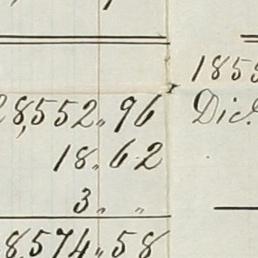 8,552.. 96
18.. 62
3.. ..
8,574.. 58
Dic.